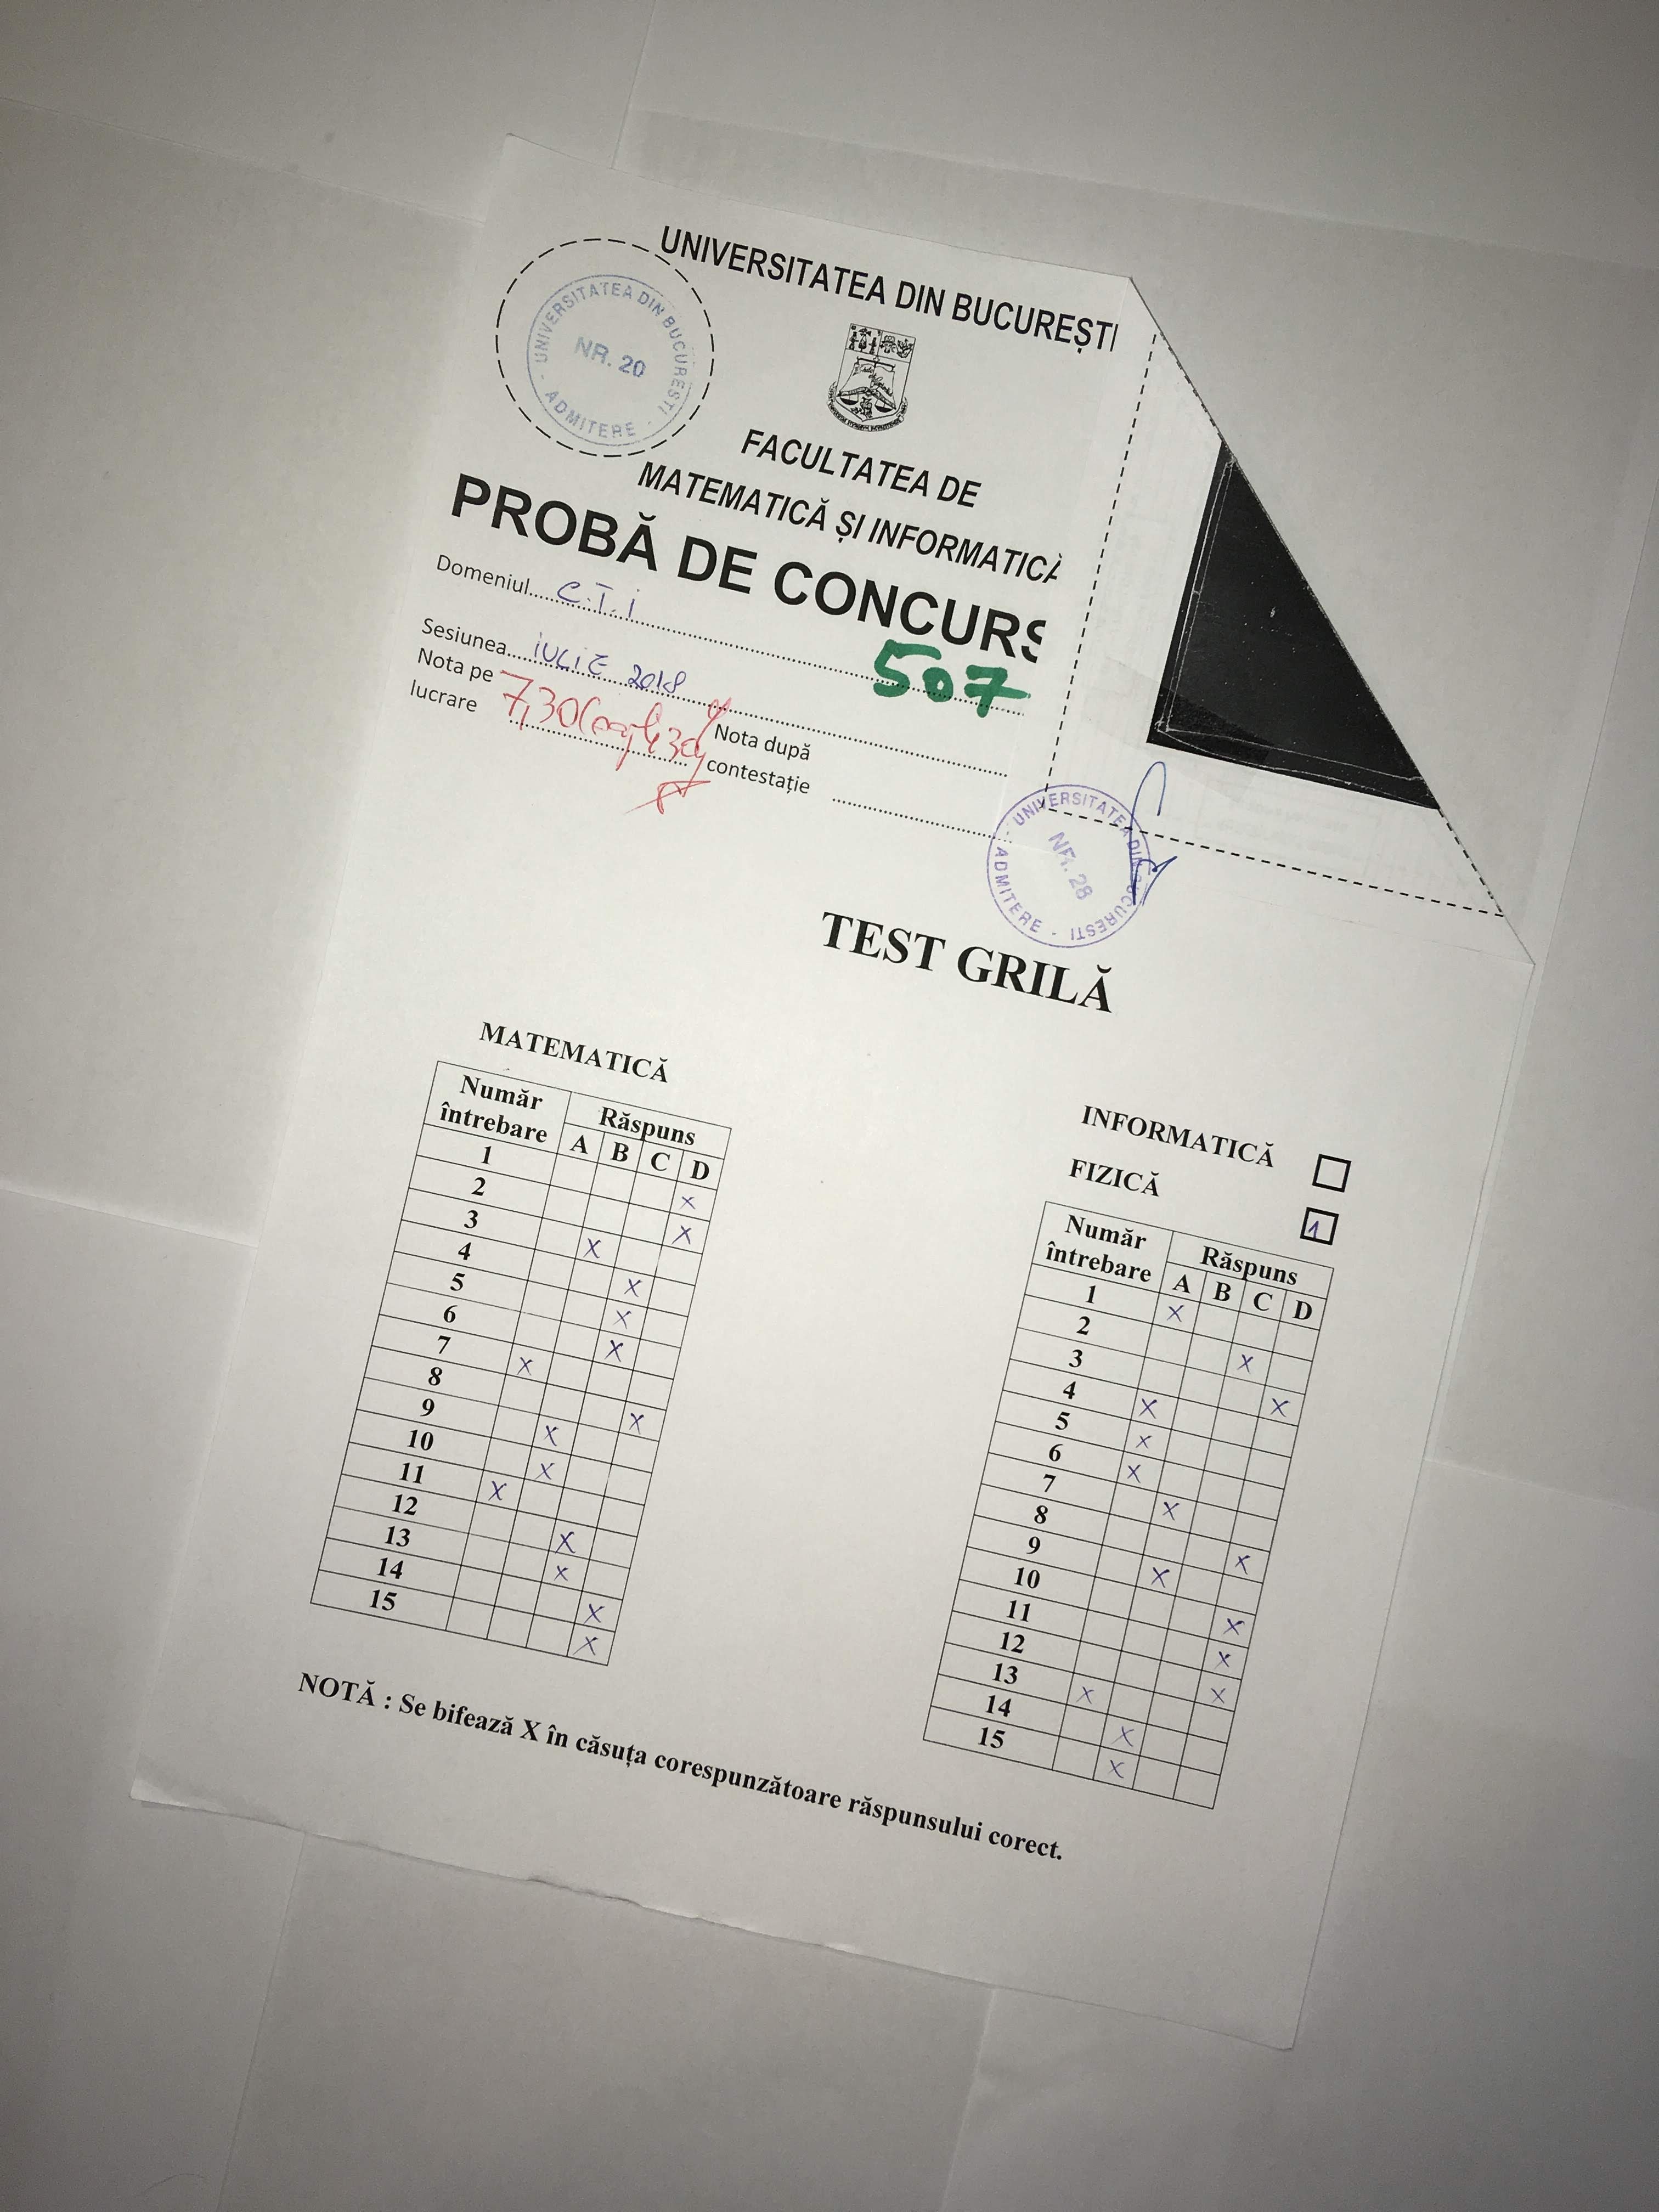 UNIVERSITATEA DIN BUCUREȘTI
UNIVERSITATEA DIN BUCURESTI
NR. 20
ADMITERE
FACULTATEA DE
MATEMATICĂ ȘI INFORMATICĂ
PROBĂ DE CONCURS
Domeniul C.T.i
507
Sesiunea iULiE 2018
Nota pe lucrare 7,30
Nota după contestație
UNIVERSITATEA DIN BUCURESTI
NR. 28
ADMITERE
TEST GRILĂ
MATEMATICĂ
Număr întrebare Răspuns
A B C D
1 X
2 X
3 X
4 X
5 X
6 X
7 X
8 X
9 X
10 X
11 X
12 X
13 X
14 X
15 X
INFORMATICĂ
FIZICĂ 1
Număr întrebare Răspuns
A B C D
1 X
2 X
3 X
4 X
5 X
6 X
7 X
8 X
9 X
10 X
11 X
12 X
13 X
14 X
15 X
NOTĂ : Se bifează X în căsuța corespunzătoare răspunsului corect.